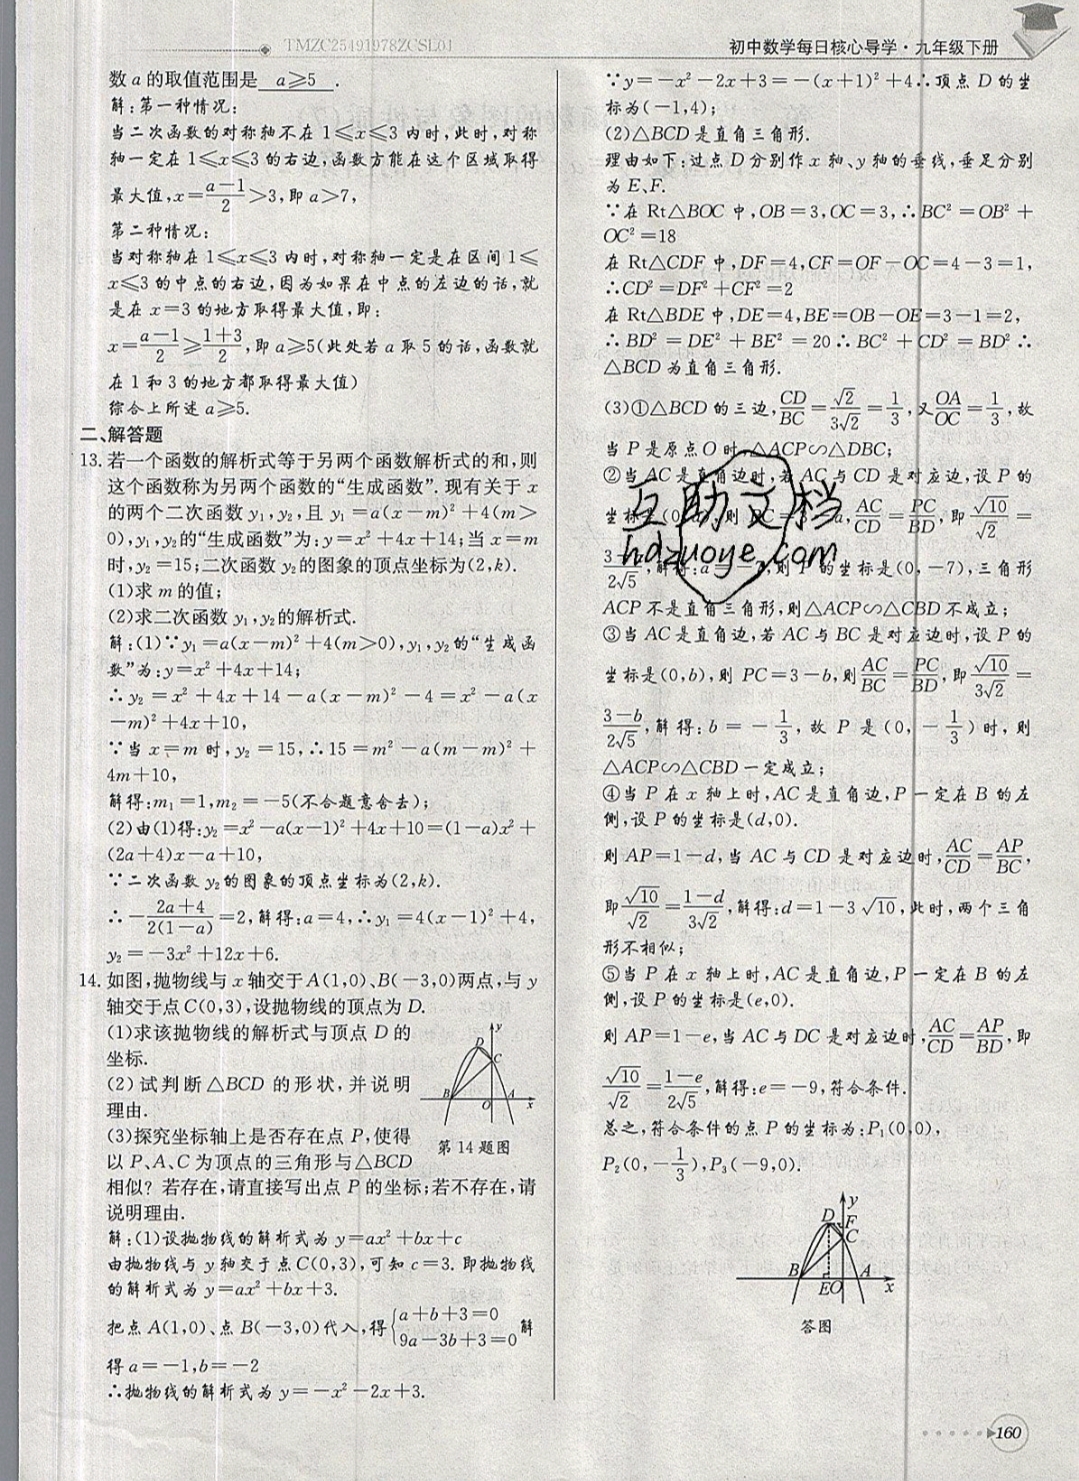 TMZC25491978ZCSL01
初中数学每日核心导学·九年级下册
数a的取值范围是 a⩾5 .
解:第一种情况:
当二次函数的对称轴不在1⩽x⩽3内时,此时,对称
轴一定在1⩽x⩽3的右边,函数方能在这个区域取得
最大值,x=(a-1)/2>3,即a>7,
第二种情况:
当对称轴在1⩽x⩽3内时,对称轴一定是在区间1⩽
x⩽3的中点的右边,因为如果在中点的左边的话,就
是在x=3的地方取得最大值,即:
x=(a-1)/2⩾(1+3)/2,即a⩾5(此处若a取5的话,函数就
在1和3的地方都取得最大值)
综合上所述a⩾5.
二、解答题
13.若一个函数的解析式等于另两个函数解析式的和,则
这个函数称为另两个函数的“生成函数”.现有关于x
的两个二次函数y₁,y₂,且y₁=a(x-m)²+4(m>
0),y₁,y₂的“生成函数”为:y=x²+4x+14;当x=m
时,y₂=15;二次函数y₂的图象的顶点坐标为(2,k).
(1)求m的值;
(2)求二次函数y₁,y₂的解析式.
解:(1)∵y₁=a(x-m)²+4(m>0),y₁,y₂的“生成函
数”为:y=x²+4x+14;
∴y₂=x²+4x+14-a(x-m)²-4=x²-a(x
-m)²+4x+10,
∵当x=m时,y₂=15,∴15=m²-a(m-m)²+
4m+10,
解得:m₁=1,m₂=-5(不合题意舍去);
(2)由(1)得:y₂=x²-a(x-1)²+4x+10=(1-a)x²+
(2a+4)x-a+10,
∵二次函数y₂的图象的顶点坐标为(2,k).
∴-(2a+4)/2(1-a)=2,解得:a=4,∴y₁=4(x-1)²+4,
y₂=-3x²+12x+6.
14.如图,抛物线与x轴交于A(1,0)、B(-3,0)两点,与y
轴交于点C(0,3),设抛物线的顶点为D.
(1)求该抛物线的解析式与顶点D的
坐标.
(2)试判断△BCD的形状,并说明
理由.
(3)探究坐标轴上是否存在点P,使得
以P、A、C为顶点的三角形与△BCD
相似?若存在,请直接写出点P的坐标;若不存在,请
说明理由.
y
D
C
B
O
A
x
第14题图
解:(1)设抛物线的解析式为y=ax²+bx+c
由抛物线与y轴交于点C(0,3),可知c=3.即抛物线
的解析式为y=ax²+bx+3.
把点A(1,0)、点B(-3,0)代入,得{a+b+3=0
9a-3b+3=0解
得a=-1,b=-2
∴抛物线的解析式为y=-x²-2x+3.
∵y=-x²-2x+3=-(x+1)²+4∴顶点D的坐
标为(-1,4);
(2)△BCD是直角三角形.
理由如下:过点D分别作x轴、y轴的垂线,垂足分别
为E、F.
∵在Rt△BOC中,OB=3,OC=3,∴BC²=OB²+
OC²=18
在Rt△CDF中,DF=4,CF=OF-OC=4-3=1,
∴CD²=DF²+CF²=2
在Rt△BDE中,DE=4,BE=OB-OE=3-1=2,
∴BD²=DE²+BE²=20∴BC²+CD²=BD²∴
△BCD为直角三角形.
(3)①△BCD的三边,CD/BC=√2/3√2=1/3,又OA/OC=1/3,故
当P是原点O时,△ACP∽△DBC;
②当AC是直角边时,若AC与CD是对应边,设P的
坐标是(0,a),则PC=3-a,AC/CD=PC/BD,即√10/√2=
(3-a)/2√5,解得:a=-7,则P的坐标是(0,-7),三角形
ACP不是直角三角形,则△ACP∽△CBD不成立;
③当AC是直角边,若AC与BC是对应边时,设P的
坐标是(0,b),则PC=3-b,则AC/BC=PC/BD,即√10/3√2=
(3-b)/2√5,解得:b=-1/3,故P是(0,-1/3)时,则
△ACP∽△CBD一定成立;
④当P在x轴上时,AC是直角边,P一定在B的左
侧,设P的坐标是(d,0).
则AP=1-d,当AC与CD是对应边时,AC/CD=AP/BC,
即√10/√2=(1-d)/3√2,解得:d=1-3√10,此时,两个三角
形不相似;
⑤当P在x轴上时,AC是直角边,P一定在B的左
侧,设P的坐标是(e,0).
则AP=1-e,当AC与DC是对应边时,AC/CD=AP/BD,即
√10/√2=(1-e)/2√5,解得:e=-9,符合条件.
总之,符合条件的点P的坐标为:P₁(0,0),
P₂(0,-1/3),P₃(-9,0).
y
D
F
C
B
A
EO
x
答图
互助文档
hdzuoye.com
160